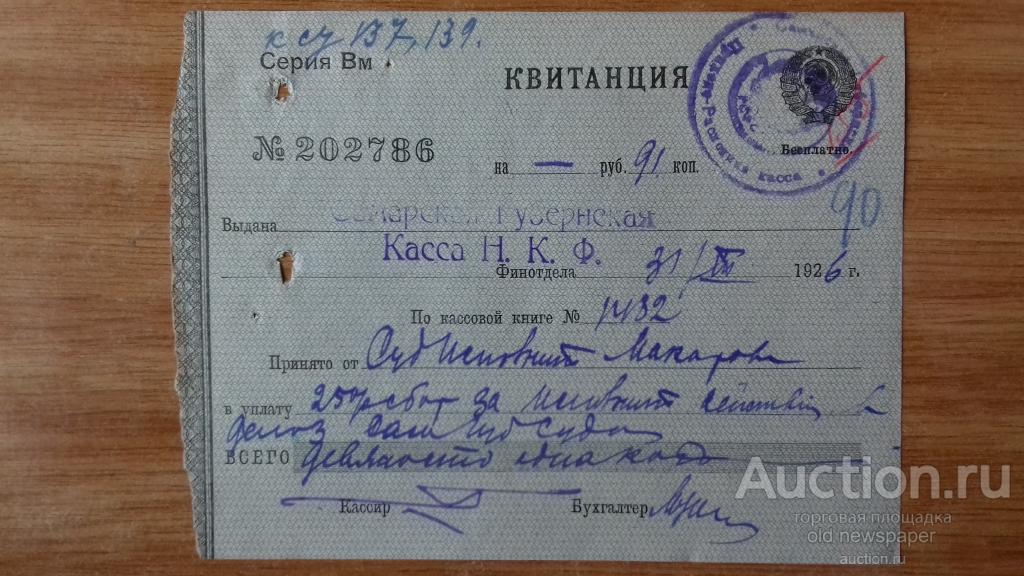 к су 137, 139.
Серия Вм
КВИТАНЦИЯ
№ 202786
на — руб. 91 коп.
Бесплатно.
Приходо-Расходная касса
90
Выдана Самарская Губернская
Касса Н. К. Ф.
Финотдела 31/XII 1926 г.
По кассовой книге № 1432
Принято от Суд Исполнит Макарова
в уплату 25% сбор за Исполнит действия
делоз Сам Губ Суда
ВСЕГО Девяносто одна коп
Кассир Бухгалтер
Auction.ru
торговая площадка
old newspaper
auction.ru